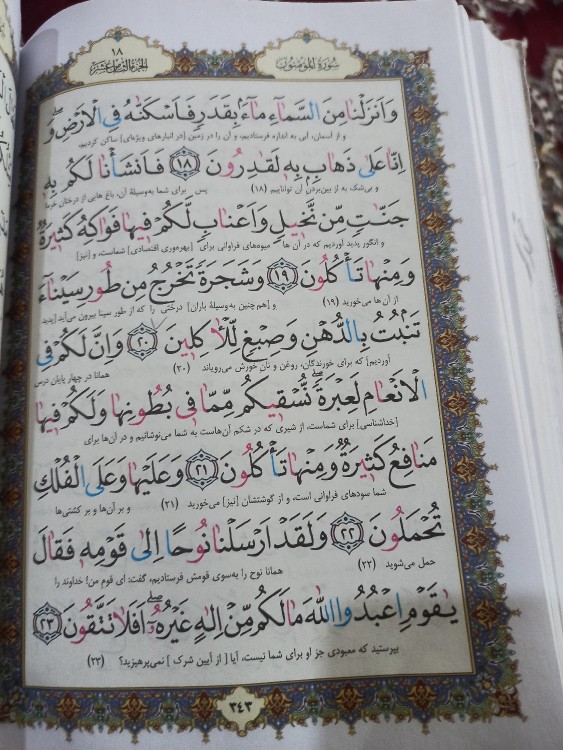 سورة المؤمنون
۱۸
الجزء الثامن عشر
وَاَنزَلْنا مِنَ السَّماءِ ماءً بِقَدَرٍ فَاَسْكَنّٰهُ فِى الْاَرْضِ وَ
و از آسمان، آبی به اندازه فرستادیم، و آن را در زمین [در انبارهای ویژه‌ای] ساکن کردیم،
اِنّا عَلىٰ ذَهابٍ بِهٖ لَقٰدِرُونَ ﴿١٨﴾ فَاَنشَأْنا لَكُم بِهٖ
و بی‌شک به از بین‌بردن آن تواناییم (۱۸) پس برای شما به‌وسیلهٔ آن، باغ هایی از درختان خرما
جَنّٰتٍ مِّن نَّخيلٍ وَاَعْنابٍ لَّكُمْ فيها فَواكِهُ كَثيرَةٌ
و انگور پدید آوردیم که در آن ها میوه‌های فراوانی برای [بهره‌وری اقتصادی] شماست، و [نیز]
وَمِنْها تَأْكُلُونَ ﴿١٩﴾ وَشَجَرَةً تَخْرُجُ مِن طُورِ سَيْناءَ
از آن ها می‌خورید (۱۹) و [هم چنین به‌وسیلهٔ باران] درختی را که از طور سینا بیرون می‌آید [پدید
تَنْبُتُ بِالدُّهْنِ وَصِبْغٍ لِّلْاٰكِلينَ ﴿٢٠﴾ وَاِنَّ لَكُمْ فِى
آوردیم] که برای خورندگان، روغن و نان خورش می‌رویاند (۲۰) همانا در چهار پایان درس
الْاَنْعامِ لَعِبْرَةً نُّسْقيكُم مِّمّا فى بُطُونِها وَلَكُمْ فيها
[خداشناسی] برای شماست، از شیری که در شکم آن‌هاست به شما می‌نوشانیم و در آن‌ها برای
مَنافِعُ كَثيرَةٌ وَمِنْها تَأْكُلُونَ ﴿٢١﴾ وَعَلَيْها وَعَلَى الْفُلْكِ
شما سودهای فراوانی است، و از گوشتشان [نیز] می‌خورید (۲۱) و بر آن‌ها و بر کشتی‌ها
تُحْمَلُونَ ﴿٢٢﴾ وَلَقَدْ اَرْسَلْنا نُوحًا اِلىٰ قَوْمِهٖ فَقالَ
حمل می‌شوید (۲۲) همانا نوح را به‌سوی قومش فرستادیم، گفت: ای قوم من! خداوند را
يٰقَوْمِ اعْبُدُوا اللّٰهَ مالَكُم مِّنْ اِلٰهٍ غَيْرُهُ اَفَلا تَتَّقُونَ ﴿٢٣﴾
بپرستید که معبودی جز او برای شما نیست، آیا [از آیین شرک] نمی‌پرهیزید؟ (۲۳)
۳۴۳